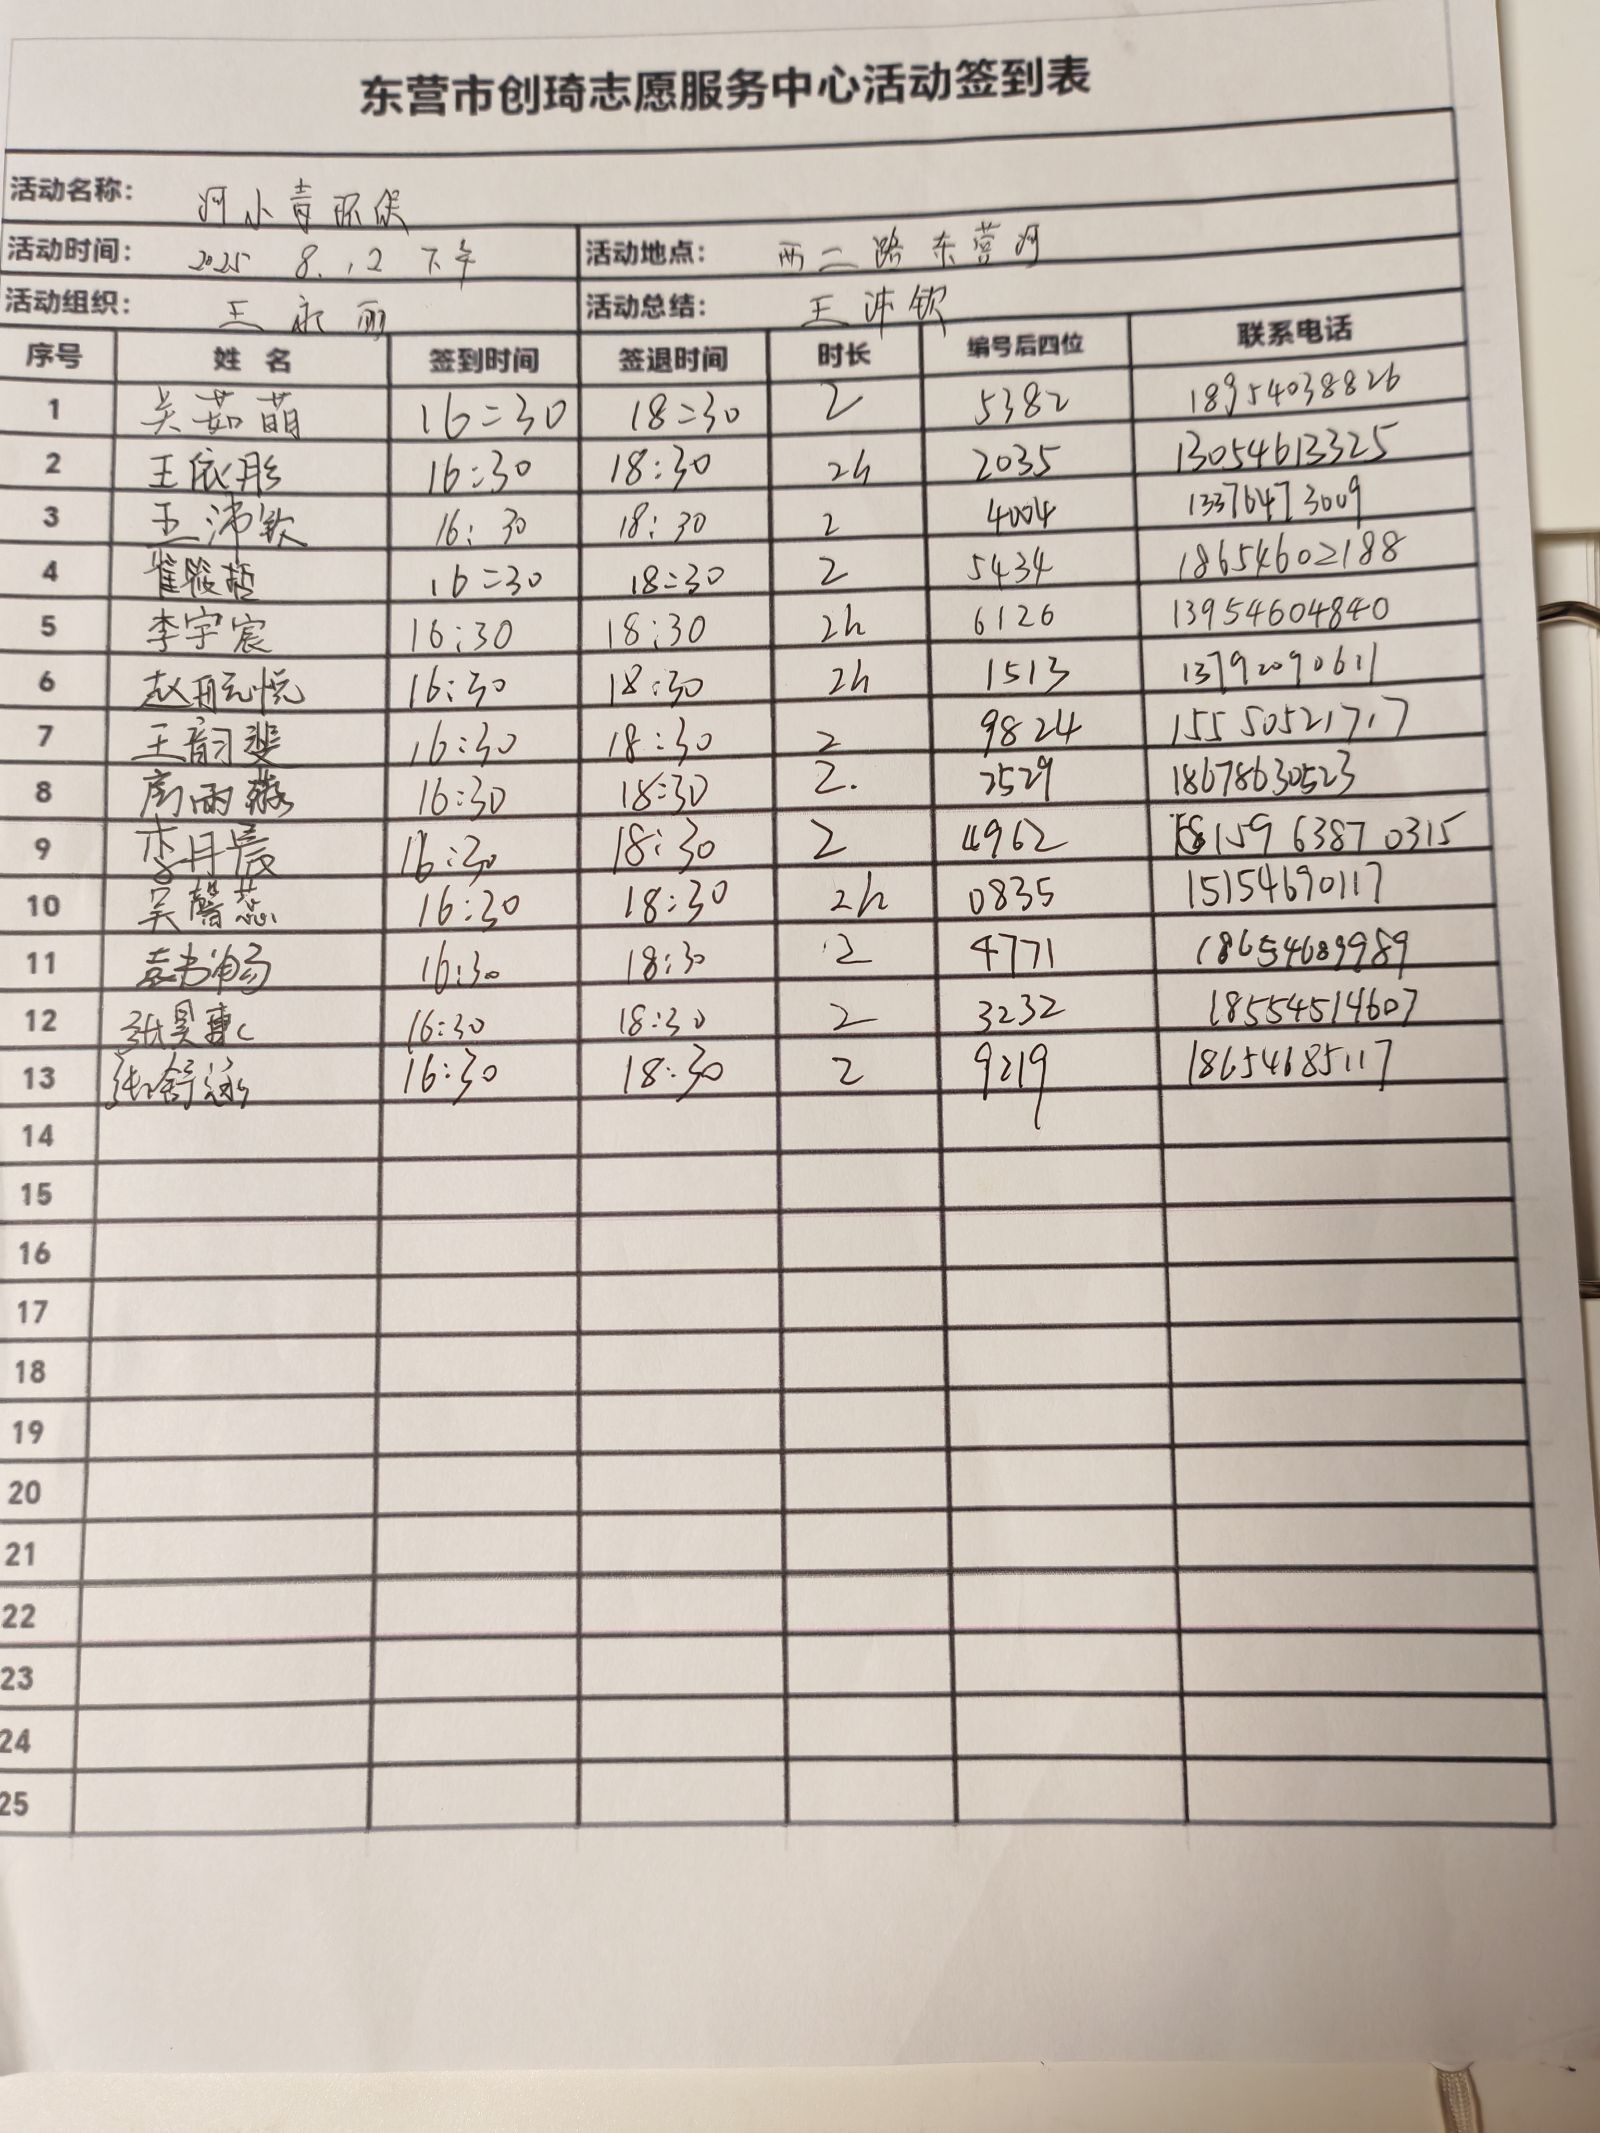 东营市创琦志愿服务中心活动签到表
活动名称: 河小青环保
活动时间: 2025 8.12 下午 活动地点: 西二路东营河
活动组织: 王永丽 活动总结: 王沛钦
序号 姓名 签到时间 签退时间 时长 编号后四位 联系电话
1 吴茹萌 16:30 18:30 2 5382 18954038826
2 王依彤 16:30 18:30 2h 2035 13054613325
3 王沛钦 16:30 18:30 2 4004 13376473009
4 崔 16:30 18:30 2 5434 18654602188
5 李宇宸 16:30 18:30 2h 6126 13954604840
6 赵 悦 16:30 18:30 2h 1513 13792090611
7 王韵斐 16:30 18:30 2 9824 15550521717
8 雨 16:30 18:30 2. 2529 18678630523
9 李月晨 16:30 18:30 2 4962 159 6387 0315
10 吴馨蕊 16:30 18:30 2h 0835 15154690117
11 袁书 16:30 18:30 2 4771 18654689989
12 张昊 16:30 18:30 2 3232 18554514607
13 张舒涵 16:30 18:30 2 9219 18654685117
14
15
16
17
18
19
20
21
22
23
24
25